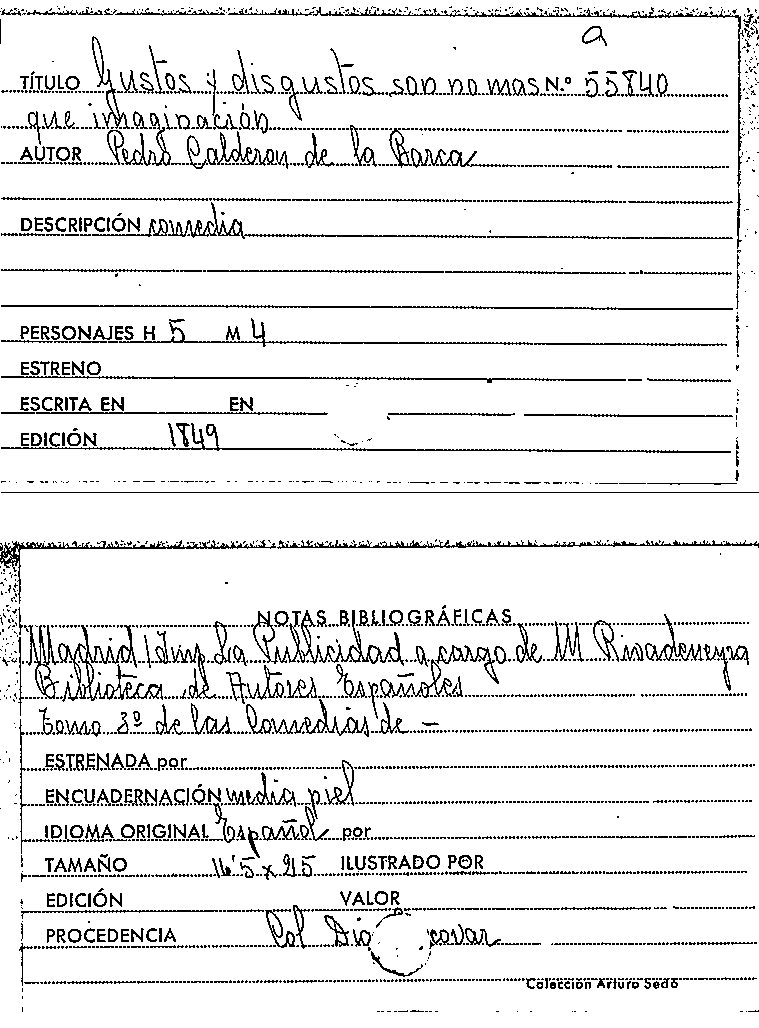 a
TÍTULO Gustos y disgustos son no mas N.º 55840
que imaginación
AUTOR Pedro Calderon de la Barca
DESCRIPCIÓN comedia
PERSONAJES H 5 M 4
ESTRENO
ESCRITA EN EN
EDICIÓN 1849
NOTAS BIBLIOGRÁFICAS
Madrid / Imp La Publicidad a cargo de M Rivadeneyra
Biblioteca de Autores Españoles
Tomo 3º de las Comedias de —
ESTRENADA por
ENCUADERNACIÓN media piel
IDIOMA ORIGINAL Español por
TAMAÑO 16'5 x 25 ILUSTRADO POR
EDICIÓN VALOR
PROCEDENCIA Col
Colección Arturo Sedó